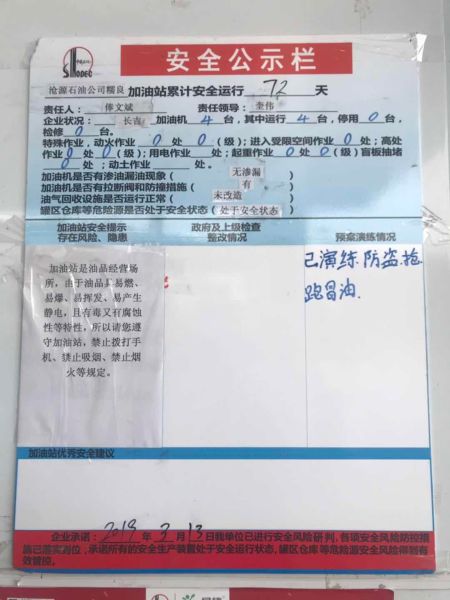 SINOPEC
安全公示栏
沧源石油公司糯良 加油站累计安全运行 72 天
责任人： 俸文斌 责任领导： 奎伟
企业状况： 长吉 加油机 4 台，其中运行 4 台，停用 0 台，
检修 0 台。
特殊作业，动火作业 0 处 0 （级）；进入受限空间作业 0 处；高处
作业 0 处 0 （级）；用电作业 处；起重作业 0 处 0 （级）盲板抽堵
0 处；动土作业 处。
加油机是否有渗油漏油现象（ 无渗漏 ）
加油机是否有拉断阀和防撞措施（ 有 ）
油气回收设施是否运行正常（ 未改造 ）
罐区仓库等危险源是否处于安全状态（ 处于安全状态 ）
加油站安全提示
存在风险、隐患
政府及上级检查
整改情况
预案演练情况
加油站是油品经营场
所，由于油品具易燃、
易爆、易挥发、易产生
静电，且有毒又有腐蚀
性等特性，所以请您遵
守加油站，禁止拨打手
机、禁止吸烟、禁止烟
火等规定。
已演练防盗.抢
跑冒油.
加油站优秀安全建议
企业承诺：2019 年 3 月 13 日我单位已进行安全风险研判，各项安全风险防控措
施已落实到位，承诺所有的安全生产装置处于安全运行状态，罐区仓库等危险源安全风险得到有
效管控。